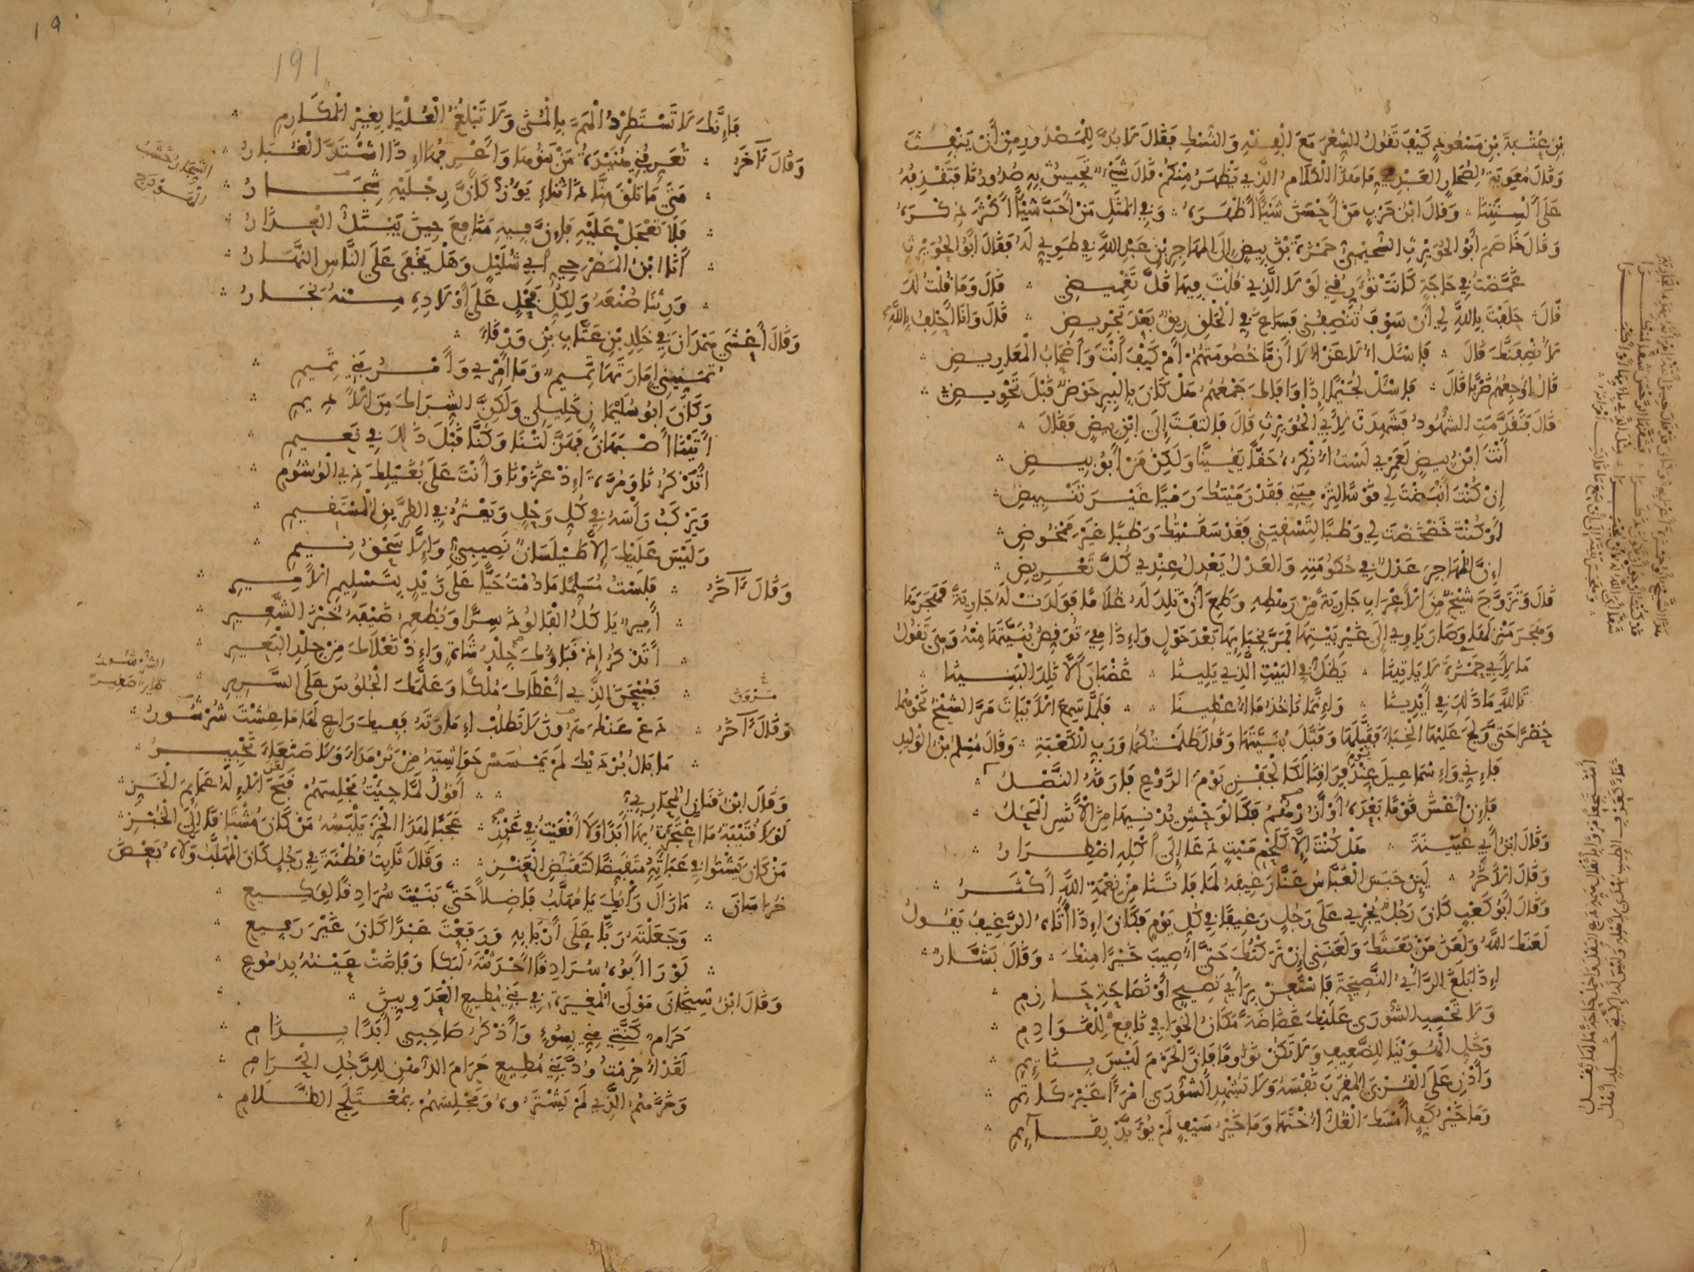 بْنِ عُتْبَةَ بْنِ مَسْعُودٍ كَيْفَ تَقُولُ الشِّعْرَ مَعَ الْفِقْهِ وَالنُّسْكِ فَقَالَ لَا بُدَّ لِلْمَصْدُورِ مِنْ أَنْ يَنْفِثَ
وَقَالَ مُعَوِيَةُ لِصُحَارٍ الْعَبْدِيِّ مَا هَذَا الْكَلَامُ الَّذِي يَظْهَرُ مِنْكُمْ قَالَ شَيْءٌ تَجِيشُ بِهِ صُدُورُنَا فَتَقْذِفُهُ
عَلَى أَلْسِنَتِنَا وَقَالَ ابْنُ حَرْبٍ مَنْ أَحْسَنَ شَيْئًا أَظْهَرَهُ وَفِي الْمَثَلِ مَنْ أَحَبَّ شَيْئًا أَكْثَرَ ذِكْرَهُ
وَقَالَ خَاصَمَ أَبُو الْحُوَيْرِثِ السُّحَيْمِيُّ حَمْزَةَ بْنَ بِيضٍ إِلَى الْمُهَاجِرِ بْنِ عَبْدِ اللَّهِ فِي طَوِيٍّ لَهُ فَقَالَ أَبُو الْحُوَيْرِثِ
غَمَّضْتُ فِي حَاجَةٍ كَانَتْ تُؤَرِّقُنِي لَوْلَا الَّذِي قُلْتَ فِيهَا قَلَّ تَغْمِيضِي قَالَ وَمَا قُلْتُ لَكَ
قَالَ حَلَفْتَ بِاللَّهِ لِي أَنْ سَوْفَ تُنْصِفُنِي فَسَاغَ فِي الْحَلْقِ رِيقٌ بَعْدَ تَجْرِيضِ قَالَ وَأَنَا أَحْلِفُ بِاللَّهِ
لَأُنْصِفَنَّكَ قَالَ فَاسْأَلْ أُلَا عَنْ أُلَا أَنْ مَا خُصُومَتُهُمْ أَمْ كَيْفَ أَنْتَ وَأَصْحَابُ الْمَعَارِيضِ
قَالَ أُوجِعُهُمْ ضَرْبًا قَالَ فَاسْأَلْ لُجَيْمًا إِذَا وَافَاكَ جَمْعُهُمُ هَلْ كَانَ بِالْبِيرِ حَوْضٌ قَبْلَ تَحْوِيضِ
قَالَ فَتَقَدَّمَتِ الشُّهُودُ فَشَهِدَتْ لِأَبِي الْحُوَيْرِثِ قَالَ فَالْتَفَتَ إِلَى ابْنِ بِيضٍ فَقَالَ
أَنْتَ ابْنُ بِيضٍ لَعَمْرِي لَسْتُ أُنْكِرُهُ حَقًّا يَقِينًا وَلَكِنْ مَنْ أَبُو بِيضِ
إِنْ كُنْتَ أَنْبَضْتَ لِي قَوْسًا لِتَرْمِيَنِي فَقَدْ رَمَيْتُكَ رَمْيًا غَيْرَ تَنْبِيضِ
أَوْ كُنْتَ خَضْخَضْتَ لِي وَطْبًا لِتَسْقِيَنِي فَقَدْ سَقَيْتُكَ وَطْبًا غَيْرَ مَمْخُوضِ
إِنَّ الْمُهَاجِرَ عَدْلٌ فِي حُكُومَتِهِ وَالْعَدْلُ يَعْدِلُ عِنْدِي كُلَّ تَعْرِيضِ
قَالَ وَتَزَوَّجَ شَيْخٌ مِنَ الْأَعْرَابِ جَارِيَةً مِنْ رَهْطِهِ وَطَمِعَ أَنْ تَلِدَ لَهُ غُلَامًا فَوَلَدَتْ لَهُ جَارِيَةً فَهَجَرَهَا
وَهَجَرَ مَنْزِلَهَا وَصَارَ يَاوِي إِلَى غَيْرِ بَيْتِهَا فَمَرَّ بِخِبَائِهَا بَعْدَ حَوْلٍ وَإِذَا هِيَ تُرَقِّصُ بُنَيَّتَهَا مِنْهُ وَهِيَ تَقُولُ
مَا لِأَبِي حَمْزَةَ لَا يَاتِينَا يَظَلُّ فِي الْبَيْتِ الَّذِي يَلِينَا غَضْبَانَ أَلَّا نَلِدَ الْبَنِينَا
تَاللَّهِ مَا ذَلِكَ فِي أَيْدِينَا وَإِنَّمَا نَاخُذُ مَا أُعْطِينَا فَلَمَّا سَمِعَ الْأَبْيَاتَ مَرَّ الشَّيْخُ نَحْوَهُمَا
حُضْرًا حَتَّى وَلَجَ عَلَيْهَا الْخِبَاءَ فَقَبَّلَهَا وَقَبَّلَ بُنَيَّتَهَا وَقَالَ ظَلَمْتُكُمَا وَرَبِّ الْكَعْبَةِ وَقَالَ مُسْلِمُ بْنُ الْوَلِيدِ
فَإِنِّي وَإِسْمَاعِيلَ عِنْدَ فِرَاقِنَا لَكَالْجَفْنِ يَوْمَ الرَّوْعِ فَارَقَهُ النَّصْلُ
فَإِنْ أَغْشَ قَوْمًا بَعْدَهُ أَوْ أَزُرْهُمُ فَكَالْوَحْشِ يُدْنِيهَا مِنَ الْأَنَسِ الْمَحْلُ
وَقَالَ ابْنُ أَبِي عُيَيْنَةَ هَلْ كُنْتَ إِلَّا كَلَحْمِ مَيْتٍ دَعَا إِلَى أَكْلِهِ اضْطِرَارُ
وَقَالَ الْآخَرُ لَئِنْ حَبَسَ الْعَبَّاسُ عَنَّا رَغِيفَهُ لَمَا فَاتَنَا مِنْ نِعْمَةِ اللَّهِ أَكْثَرُ
وَقَالَ أَبُو كَعْبٍ كَانَ رَجُلٌ يُجْرِي عَلَى رَجُلٍ رَغِيفًا فِي كُلِّ يَوْمٍ فَكَانَ إِذَا أَتَاهُ الرَّغِيفُ يَقُولُ
لَعَنَكَ اللَّهُ وَلَعَنَ مَنْ بَعَثَكَ وَلَعَنَنِي إِنْ تَرَكْتُكَ حَتَّى أُصِيبَ خَيْرًا مِنْكَ وَقَالَ بَشَّارٌ
إِذَا بَلَغَ الرَّأْيُ النَّصِيحَةَ فَاسْتَعِنْ بِرَأْيِ نَصِيحٍ أَوْ نَصَاحَةِ حَازِمِ
وَلَا تَحْسِبِ الشُّورَى عَلَيْكَ غَضَاضَةً مَكَانُ الْخَوَافِي نَافِعٌ لِلْقَوَادِمِ
وَخَلِّ الْهُوَيْنَا لِلضَّعِيفِ وَلَا تَكُنْ نَؤُومًا فَإِنَّ الْحَزْمَ لَيْسَ بِنَائِمِ
وَأَدْنِ عَلَى الْقُرْبَى الْمُقَرِّبَ نَفْسَهُ وَلَا تُشْهِدِ الشُّورَى امْرَأً غَيْرَ كَاتِمِ
وَمَا خَيْرُ كَفٍّ أَمْسَكَ الْغُلُّ أُخْتَهَا وَمَا خَيْرُ سَيْفٍ لَمْ يُؤَيَّدْ بِقَائِمِ
19
191
فَإِنَّكَ لَا تَسْتَطْرِدُ الْهَمَّ بِالْمُنَى وَلَا تَبْلُغُ الْعُلْيَا بِغَيْرِ الْمَكَارِمِ
وَقَالَ آخَرُ تُعَرِّفُنِي هُنَيْدَةُ مَنْ بَنُوهَا وَأَعْرِفُهَا إِذَا اشْتَدَّ الْغُبَارُ
مَتَى مَا تَلْقَ مِنَّا ذَا ثَنَاءٍ يَؤُزُّ كَأَنَّ رِجْلَيْهِ شِجَارُ
فَلَا تَعْجَلْ عَلَيْهِ فَإِنَّ فِيهِ مَنَافِعَ حِينَ يَبْتَلُّ الْعِذَارُ
أَنَا ابْنُ الْمَضْرَحِيِّ أَبِي شُلَيْلٍ وَهَلْ يَخْفَى عَلَى النَّاسِ النَّهَارُ
وَرِثْنَا صُنْعَهُ وَلِكُلِّ فَحْلٍ عَلَى أَوْلَادِهِ مِنْهُ نِجَارُ
وَقَالَ أَعْشَى هَمْدَانَ فِي خَالِدِ بْنِ عَتَّابِ بْنِ وَرْقَاءَ
تُمَنِّينِي إِمَارَتَهَا تَمِيمٌ وَمَا أَمْرِي وَأَمْرُ بَنِي تَمِيمِ
وَكَانَ أَبُو سُلَيْمَانٍ خَلِيلِي وَلَكِنَّ الشِّرَاكَ مِنَ الْأَدِيمِ
أَتَيْنَا أَصْبَهَانَ فَهَزَّلَتْنَا وَكُنَّا قَبْلَ ذَلِكَ فِي نَعِيمِ
أَتَذْكُرُنَا وَمُرَّةَ إِذْ غَزَوْنَا وَأَنْتَ عَلَى بُغَيْلِكَ ذِي الْوُشُومِ
وَيَرْكَبُ رَأْسَهُ فِي كُلِّ وَحْلٍ وَيَعْثُرُ فِي الطَّرِيقِ الْمُسْتَقِيمِ
وَلَيْسَ عَلَيْكَ إِلَّا طَيْلَسَانٌ نَصِيبِيٌّ وَإِلَّا سَحْقُ نِيمِ
وَقَالَ آخَرُ فَلَسْتُ مُسَلِّمًا مَا دُمْتُ حَيًّا عَلَى زَيْدٍ بِتَسْلِيمِ الْأَمِيرِ
أَمِيرٌ يَاكُلُ الْفَالُوذَ سِرًّا وَيُطْعِمُ ضَيْفَهُ خُبْزَ الشَّعِيرِ
أَتَذْكُرُ إِذْ قَبَاؤُكَ جِلْدُ شَاةٍ وَإِذْ نَعْلَاكَ مِنْ جِلْدِ الْبَعِيرِ
فَسُبْحَنَ الَّذِي أَعْطَاكَ مُلْكًا وَعَلَّمَكَ الْجُلُوسَ عَلَى السَّرِيرِ
وَقَالَ آخَرُ دَعْ عَنْكَ مَرْوَنَ لَا تَطْلُبْ إِمَارَتَهُ فَفِيكَ رَاعٍ لَهَا مَا عِشْتَ شُرْشُورُ
مَا بَالُ بُرْدِكَ لَمْ يَمْسَسْ حَوَاشِيَهُ مِنْ ثَرْمَدَاءَ وَلَا صَنْعَاءَ تَحْبِيرُ
وَقَالَ ابْنُ قَنَانٍ الْمُحَارِبِيُّ أَقُولُ لَمَّا جِئْتُ مَجْلِسَهُمْ قَبَحَ الْإِلَهُ عَمَايِمَ الْخَزِّ
لَوْلَا قُتَيْبَةُ مَا اعْتَجَرْتَ بِهَا أَبَدًا وَلَا أَقْعَيْتَ فِي غَرْزِ عَجَبًا لِهَذَا الْخَزِّ يَلْبَسُهُ مَنْ كَانَ مُشْتَاقًا إِلَى الْخُبْزِ
مَنْ كَانَ يَشْتُو فِي عَبَائَتِهِ مُتَقَبِّضًا كَتَقَبُّضِ الْعَنْزِ وَقَالَ ثَابِتُ قُطْنَةَ فِي رَجُلٍ كَانَ الْمُهَلَّبُ وَلَّاهُ بَعْضَ
خُرَاسَانَ مَا زَالَ رَأْيُكَ يَا مُهَلَّبُ فَاضِلًا حَتَّى بَنَيْتَ سُرَادِقًا لِوَكِيعِ
وَجَعَلْتَهُ رَبًّا عَلَى أَرْبَابِهِ وَرَفَعْتَ عَبْدًا كَانَ غَيْرَ رَفِيعِ
لَوْ رَا أَبُوهُ سُرَادِقًا أَحْدَثْتَهُ لَبَكَا وَفَاضَتْ عَيْنُهُ بِدُمُوعِ
وَقَالَ ابْنُ شِيخَانَ مَوْلَى الْمُغِيرَةِ فِي بَنِي مُطِيعٍ الْعَدَوِيِّينَ
حَرَامٌ كَنَّتِي مِنِّي بِسُوءٍ وَأَذْكُرُ صَاحِبِي أَبَدًا بِذَامِ
لَقَدْ أُحْرِمْتُ وُدَّ بَنِي مُطِيعٍ حَرَامَ الدُّهْنِ لِلرَّجُلِ الْحَرَامِ
وَخَزَّهُمُ الَّذِي لَمْ يَشْتَرُوهُ وَمَجْلِسَهُمْ بِمُعْتَلِجِ الظَّلَامِ
الشِّجَارُ خَشَبُ
الْهَوْدَجِ
مَرْوَنَ
الشُّرْشُورُ
طَايِرٌ صَغِيرٌ